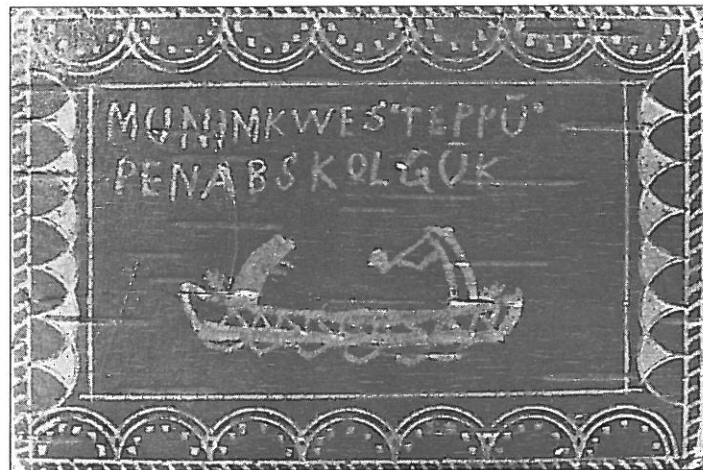 MUNIMKWES "TEPPŪ"
PENABSKOLGUK